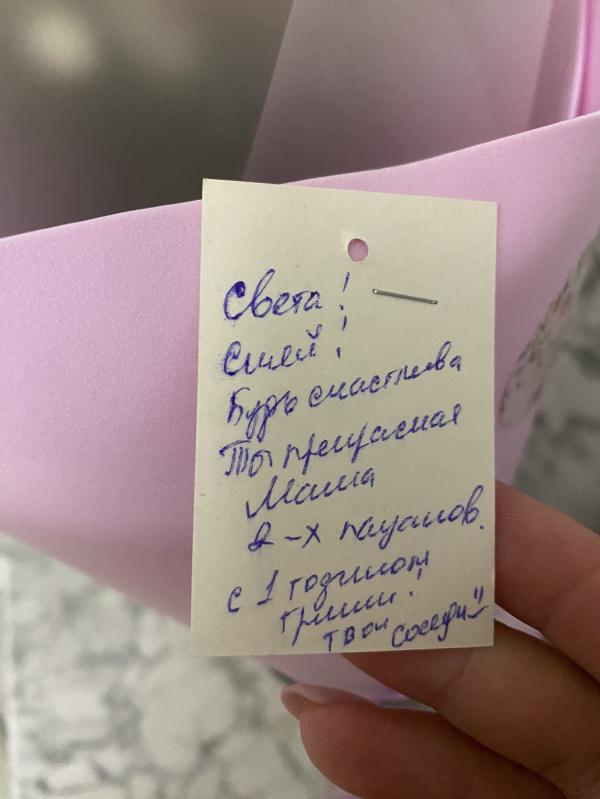 Света!
Сияй!
Будь счастлива
Ты прекрасная
Мама
2-х пацанов.
с 1 годиком
Гриши!
твои соседи!!